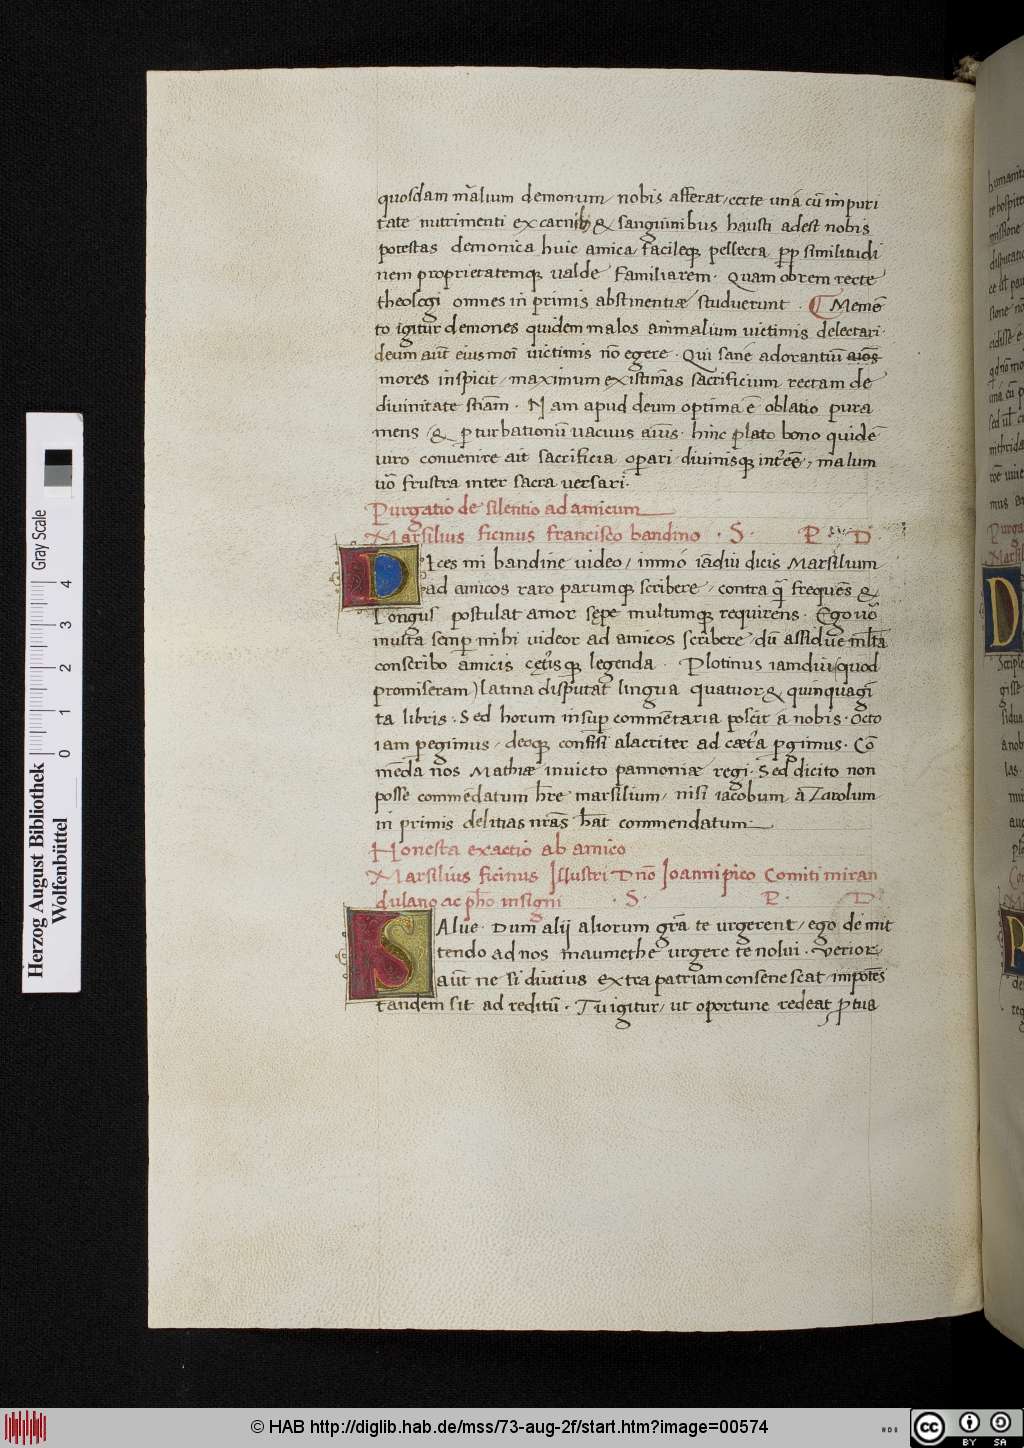 quosdam mãlium demonum / nobis afferat / certe una cũ impuri
tate nutrimenti ex carnib; & sanguinibus hausti adest nobis
potestas demonica huic amica facileqꝫ pellecta ꝓp similitudi
nem proprietatemqꝫ ualde familiarem · Quam obrem recte
theologi omnes in primis abstinentiæ studuerunt · ¶ Memẽ
to igitur demones quidem malos animalium uictimis delectari ·
deum aũt eiusmõi uictimis nõ egere · Qui sane adorantiũ aĩos
mores inspicit / maximum existimãs sacrificium rectam de
diuinitate sñiam · Nam apud deum optima ẽ oblatio pura
mens / & ꝑturbationũ uacuus aĩus · hinc plato bono quidẽ
uiro conuenire ait sacrificia oꝑari diuinisqꝫ int̃eẽ / malum
uõ frustra inter sacra uersari ·
Purgatio de silentio ad amicum
Marsilius ficinus francisco bandino · S · P · D ·
DIces mi bandine uideo / immo iãdiu dicis Marsilium
ad amicos raro parumqꝫ scribere / contra q̃ frequẽs &
longus postulat amor sępe multumqꝫ requirens · Ego uõ
multa semꝑ mihi uideor ad amicos scribere / dũ assidue ml̃ta
conscribo amicis cęt̃isqꝫ legenda · Plotinus iamdiu (quod
promiseram) latina disputat lingua quatuor & quinquagĩ
ta libris · Sed horum insuꝑ commẽtaria poscit a nobis · Octo
iam ꝑegimus / deoqꝫ confisi alacriter ad cæt̃a ꝑgimus · Cõ
mẽda nos Mathiæ inuicto pannoniæ regi · Sed dicito non
posse commẽdatum h̃re marsilium / nisi iacobum ã Zarolum
in primis delitias nr̃as h̃at commendatum
Honesta exactio ab amico
Marsilius ficinus Illustri Dnõ Joanni pico Comiti miran
dulano ac ph̃o insigni · S · P · D ·
SALue · Dum alij aliorum gr̃a te urgerent / ego de mit
tendo ad nos maumethe urgere te nolui · Verior
aũt ne si diutius extra patriam consenescat / impotẽs
tandem sit ad reditũ · Tu igitur / ut oportune redeat ꝑ tua
Herzog August Bibliothek
Wolfenbüttel
0 1 2 3 4
Gray Scale
© HAB http://diglib.hab.de/mss/73-aug-2f/start.htm?image=00574
cc BY SA